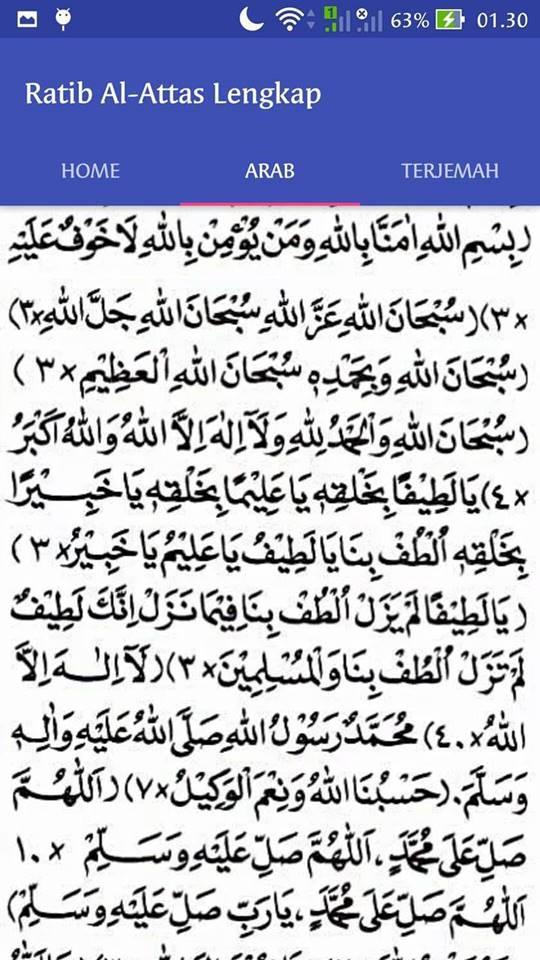 63% 01.30
Ratib Al-Attas Lengkap
HOME ARAB TERJEMAH
(بِسْمِ اللهِ اٰمَنَّا بِاللهِ وَمَنْ يُؤْمِنْ بِاللهِ لَا خَوْفٌ عَلَيْهِ
×٣) (سُبْحَانَ اللهِ عَزَّ اللهِ سُبْحَانَ اللهِ جَلَّ اللهِ ×٣)
(سُبْحَانَ اللهِ وَبِحَمْدِهٖ سُبْحَانَ اللهِ الْعَظِيْمِ ×٣)
(سُبْحَانَ اللهِ وَالْحَمْدُ لِلهِ وَلَآ اِلٰهَ اِلَّا اللهُ وَاللهُ اَكْبَرُ
×٤) يَا لَطِيْفًا بِخَلْقِهٖ يَا عَلِيْمًا بِخَلْقِهٖ يَا خَبِيْرًا
بِخَلْقِهٖ اُلْطُفْ بِنَا يَا لَطِيْفُ يَا عَلِيْمُ يَا خَبِيْرُ ×٣)
(يَا لَطِيْفًا لَمْ يَزَلْ اُلْطُفْ بِنَا فِيْمَا نَزَلْ اِنَّكَ لَطِيْفٌ
لَمْ تَزَلْ اُلْطُفْ بِنَا وَالْمُسْلِمِيْنَ ×٣) (لَآ اِلٰهَ اِلَّا
اللهُ ×٤٠) مُحَمَّدٌ رَسُوْلُ اللهِ صَلَّى اللهُ عَلَيْهِ وَاٰلِهٖ
وَسَلَّمَ. (حَسْبُنَا اللهُ وَنِعْمَ الْوَكِيْلُ ×٧) (اَللّٰهُمَّ
صَلِّ عَلَى مُحَمَّدٍ، اَللّٰهُمَّ صَلِّ عَلَيْهِ وَسَلِّمْ ×١٠
اَللّٰهُمَّ صَلِّ عَلَى مُحَمَّدٍ، يَارَبِّ صَلِّ عَلَيْهِ وَسَلِّمْ)